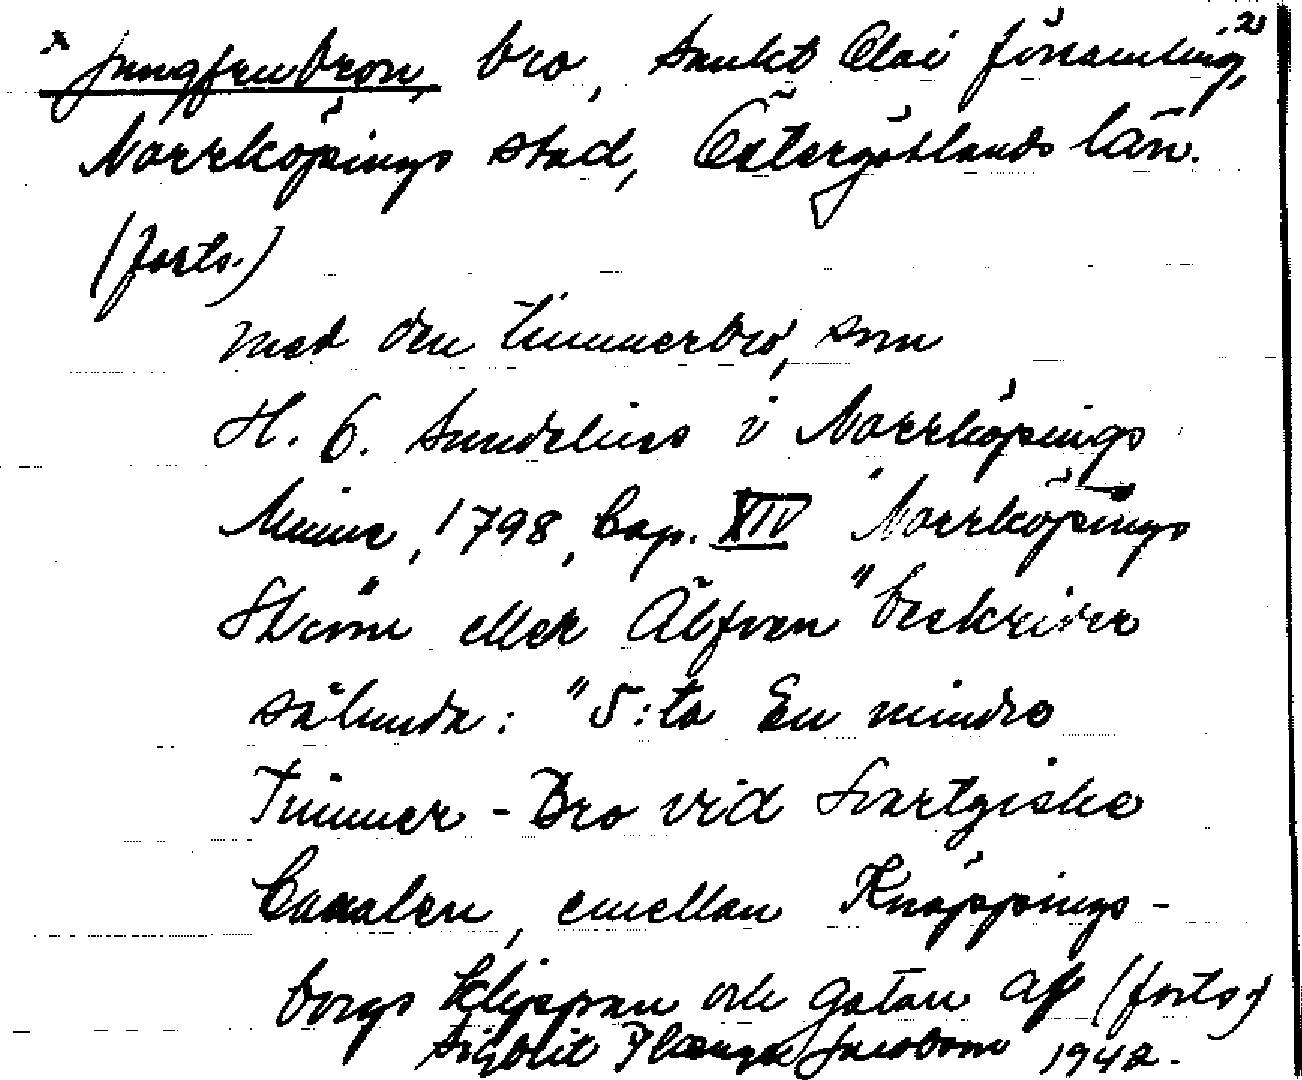 x Jungfrubron, bro, Sankt Olai församling, 2)
Norrköpings stad, Östergötlands län.
(forts.)
med den timmerbro, som
H. O. Sundelius i Norrköpings
Minne, 1798, Cap. XIV "Norrköpings
Ström eller Älfven" beskriver
sålunda: "5:ta En mindre
Timmer-Bro vid Svartziska
Canalen, emellan Knäppings-
borgs Klippan och Gatan af (forts.)
Sigblit Plænge Jacobson 1942.